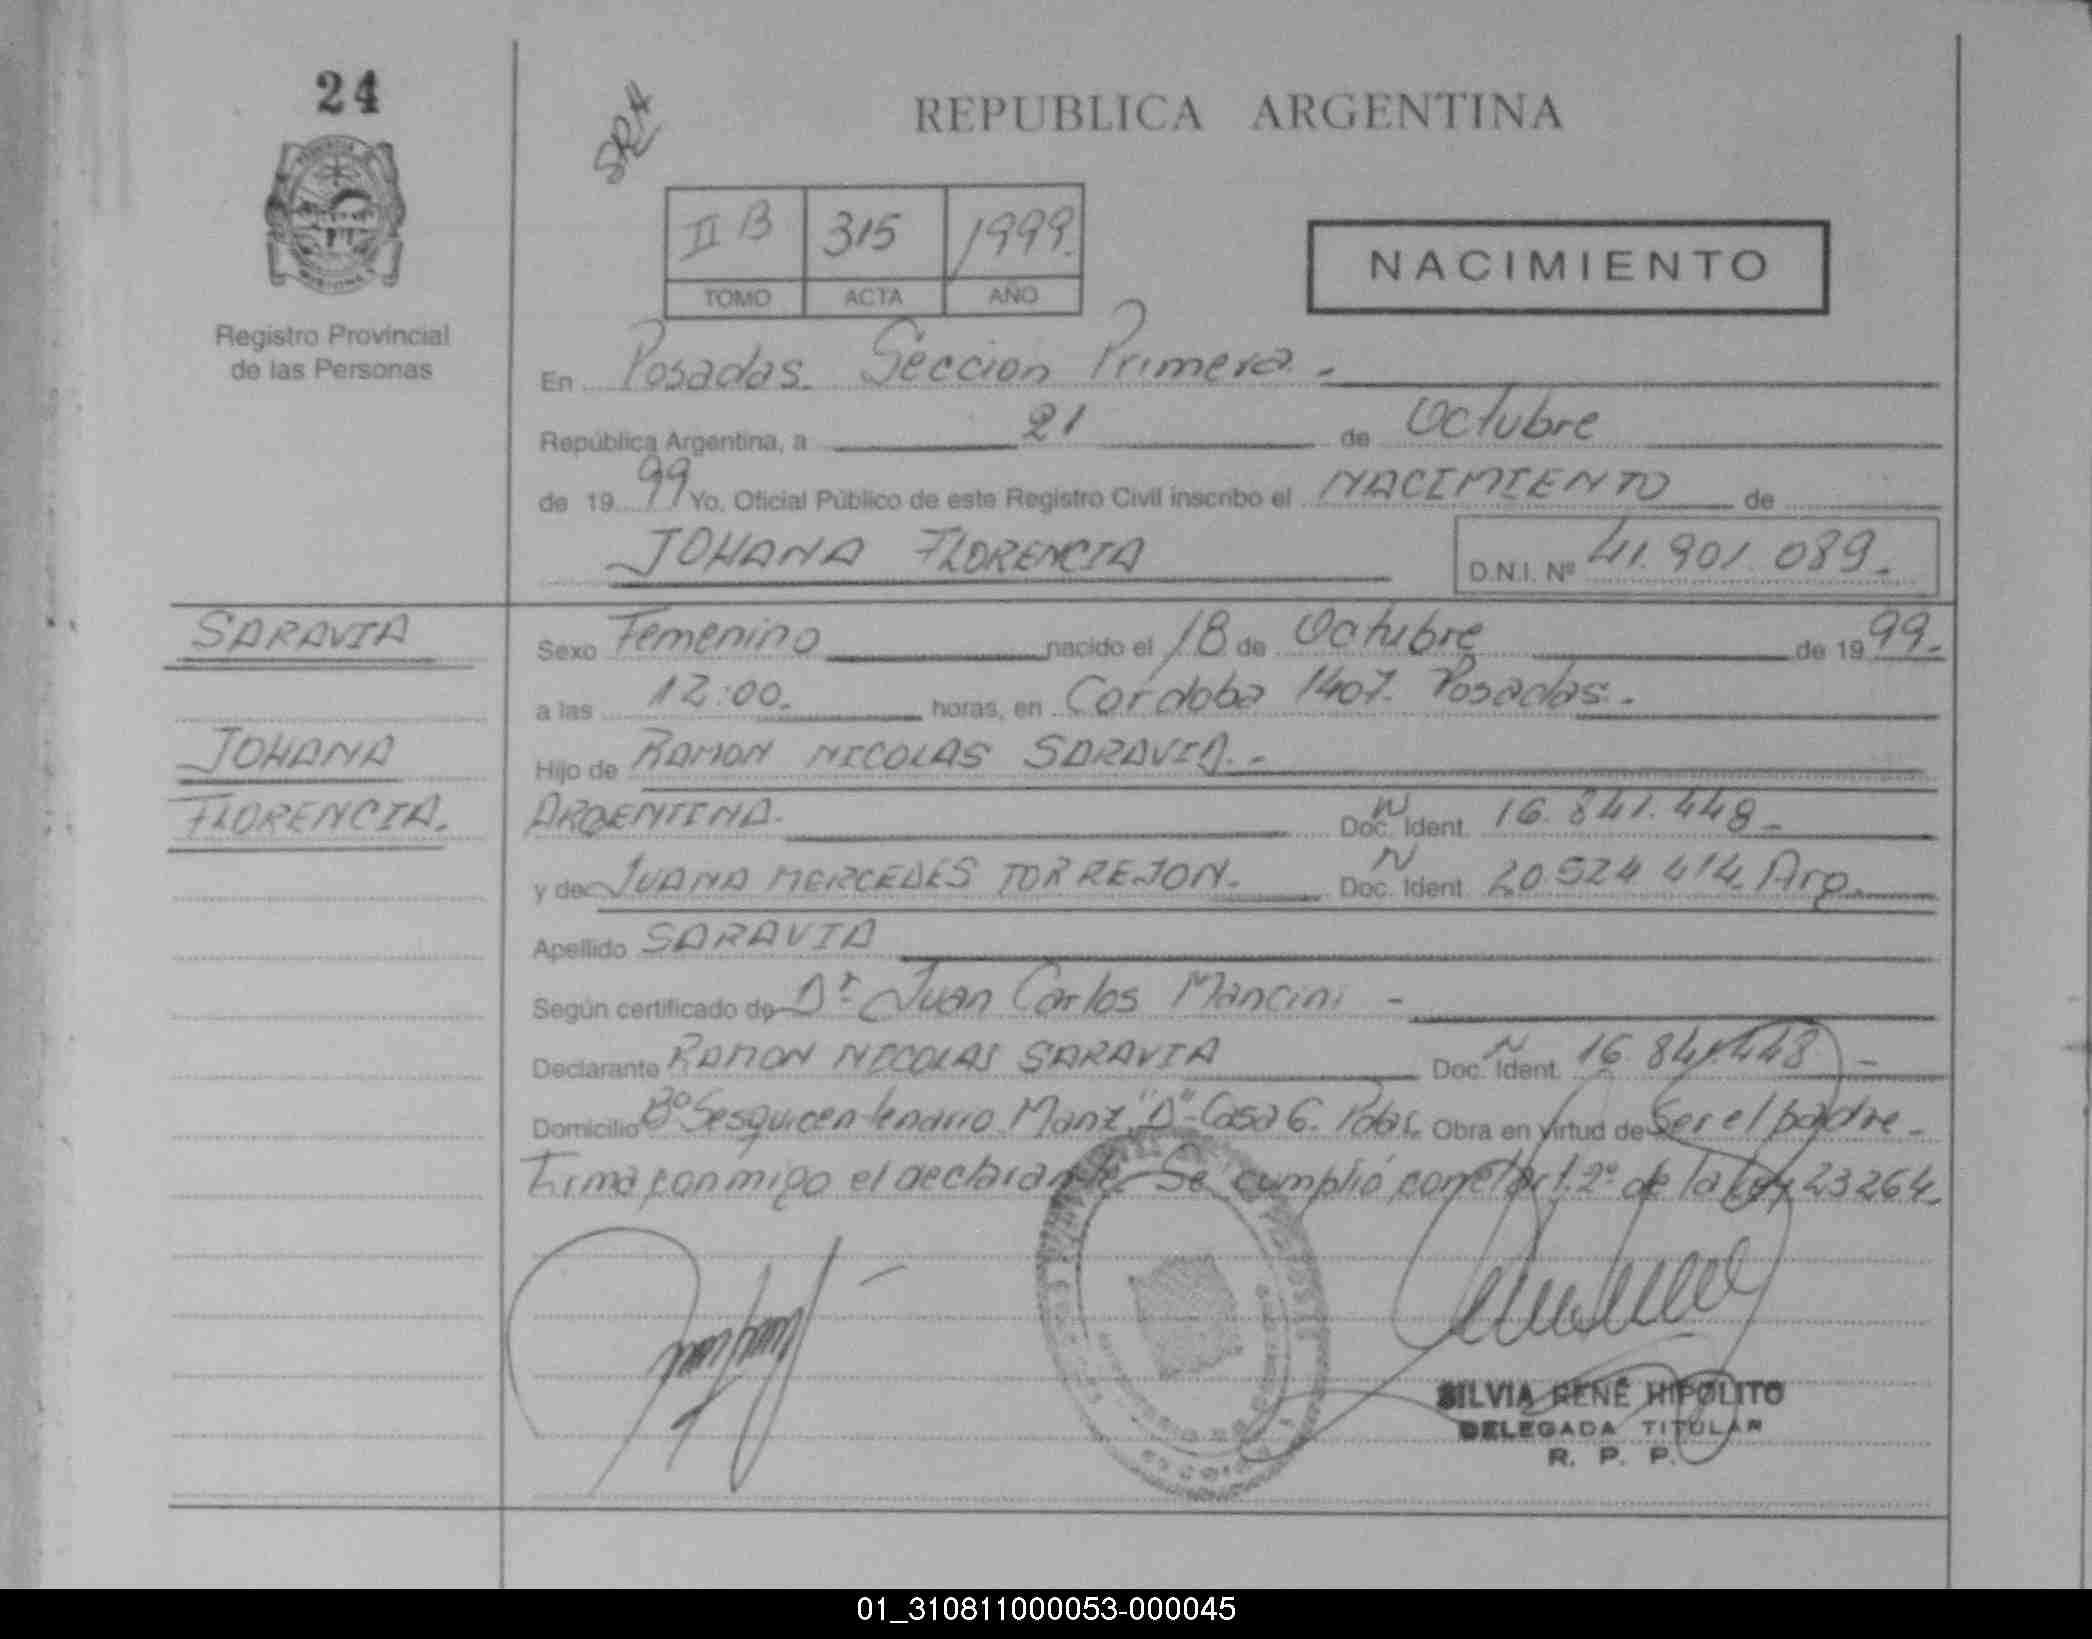 24
SRH
REPUBLICA ARGENTINA
II B 315 1999.
TOMO ACTA AÑO
NACIMIENTO
Registro Provincial
de las Personas
En Posadas. Seccion Primera.-
República Argentina, a 21 de Octubre
de 19 99 Yo, Oficial Público de este Registro Civil inscribo el NACIMIENTO de
JOHANA FLORENCIA D.N.I. Nº 41.901.089.-
SARAVIA
JOHANA
FLORENCIA.
Sexo Femenino nacido el 18 de Octubre de 19 99.-
a las 12:00. horas, en Cordoba 1407. Posadas.-
Hijo de RAMON NICOLAS SARAVIA.-
ARGENTINA. Doc. Ident. N 16.841.448-
y de JUANA MERCEDES TORREJON. Doc. Ident. N 20.524.414. Arg.
Apellido SARAVIA
Según certificado de Dr. Juan Carlos Mancini -
Declarante RAMON NICOLAS SARAVIA Doc. Ident. N 16.841.448 -
Domicilio Bº Sesquicentenario Manz "D" Casa 6. Pdas. Obra en virtud de Ser el padre.-
Firma conmigo el declarante. Se cumplió con el art. 2º de la Ley 23264.
SILVIA RENÉ HIPOLITO
DELEGADA TITULAR
R. P. P.
01_310811000053-000045